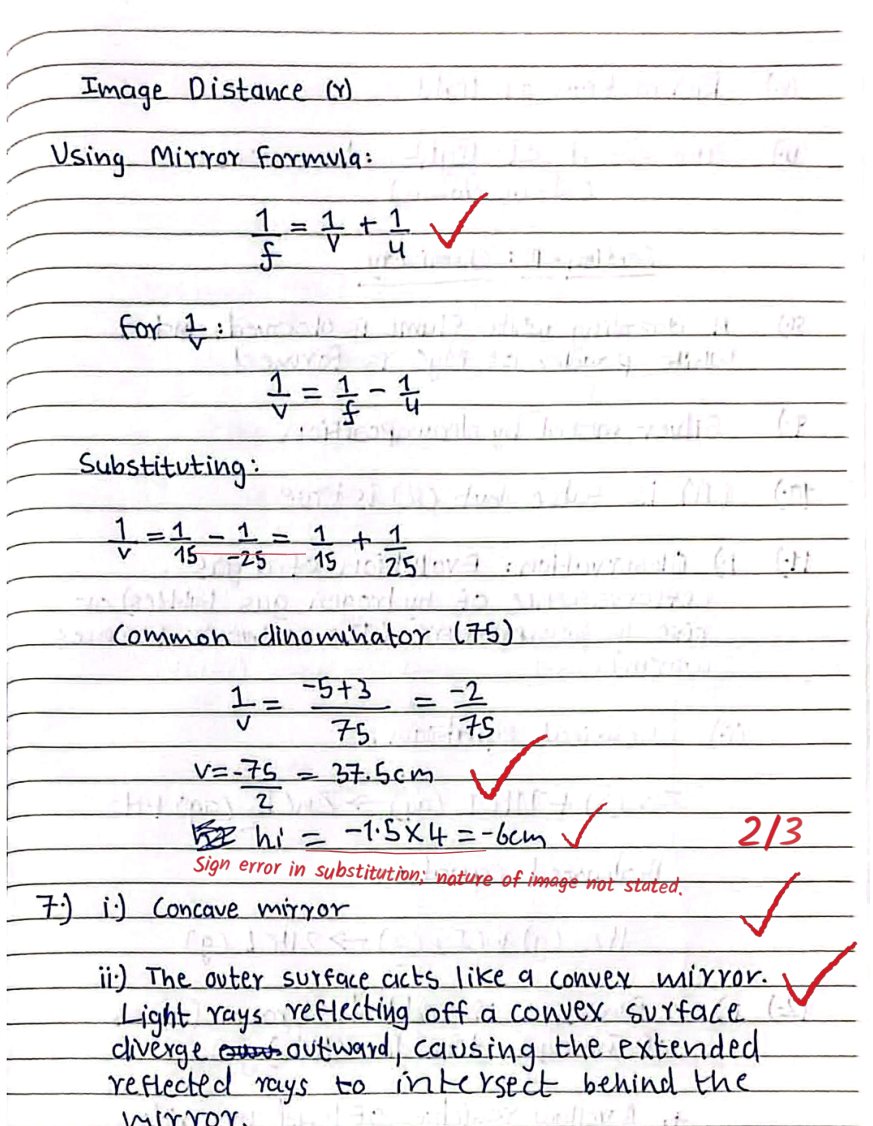 Image Distance (v)
Using Mirror Formula:
1/f = 1/v + 1/u ✓
for 1/v :
1/v = 1/f - 1/u
Substituting:
1/v = 1/15 - 1/-25 = 1/15 + 1/25
Common dinominator (75)
1/v = -5+3/75 = -2/75
v = -75/2 = 37.5cm ✓
hi = -1.5 × 4 = -6cm ✓ 2/3
Sign error in substitution; nature of image not stated.
7.) i.) Concave mirror ✓
ii.) The outer surface acts like a convex mirror. ✓
Light rays reflecting off a convex surface
diverge outward, causing the extended
reflected rays to intersect behind the
mirror.